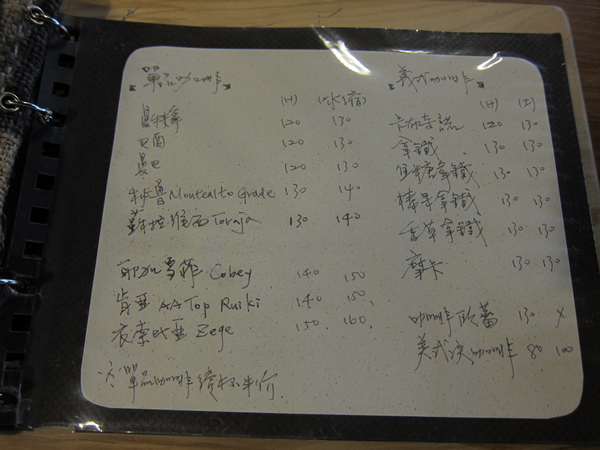 單品咖啡
(H) (冰滴)
曼特寧 120 130
巴西 120 130
曼巴 120 130
秘魯 Montealto Grade 130 140
蘇拉維西 Toraja 130 140
耶加雪菲 Cobey 140 150
肯亞 AA Top Ruiki 140 150
衣索比亞 Zege 150 160
單品咖啡續杯半價
義式咖啡
(H) (I)
卡布奇諾 120 130
拿鐵 130 130
焦糖拿鐵 130 130
榛果拿鐵 130 130
香草拿鐵 130 130
摩卡 130 130
咖啡歐蕾 130 X
美式淡咖啡 80 100